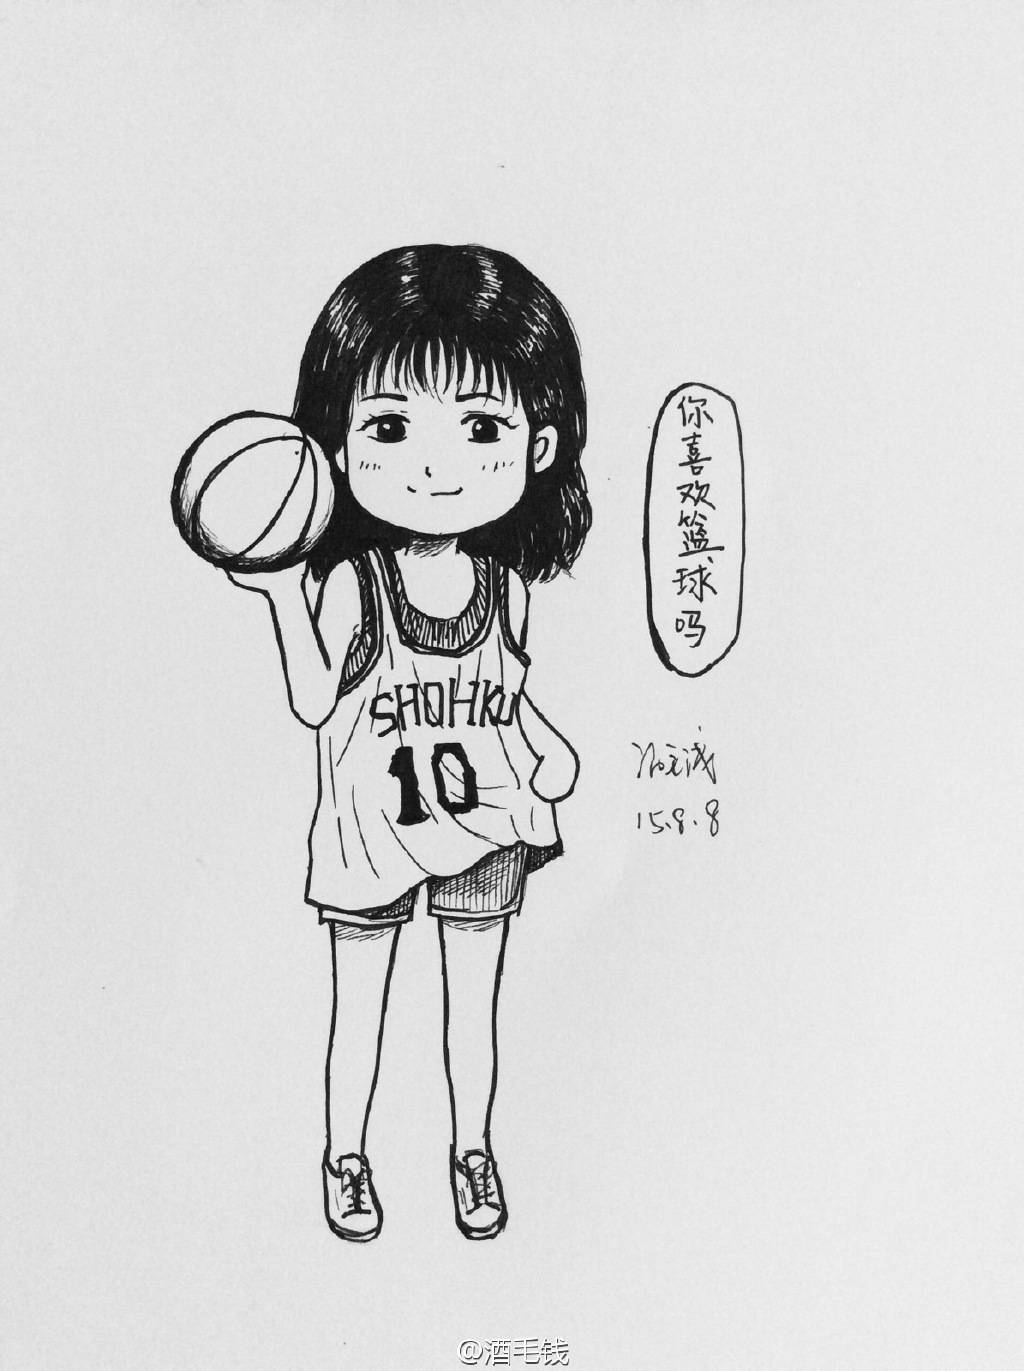 你喜欢篮球吗
SHOHKU
10
15.8.8
@酒毛钱